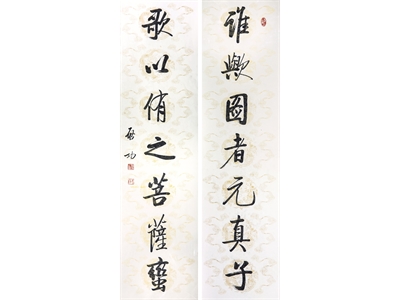 谁欤图者元真子
歌以侑之菩萨蛮
启功